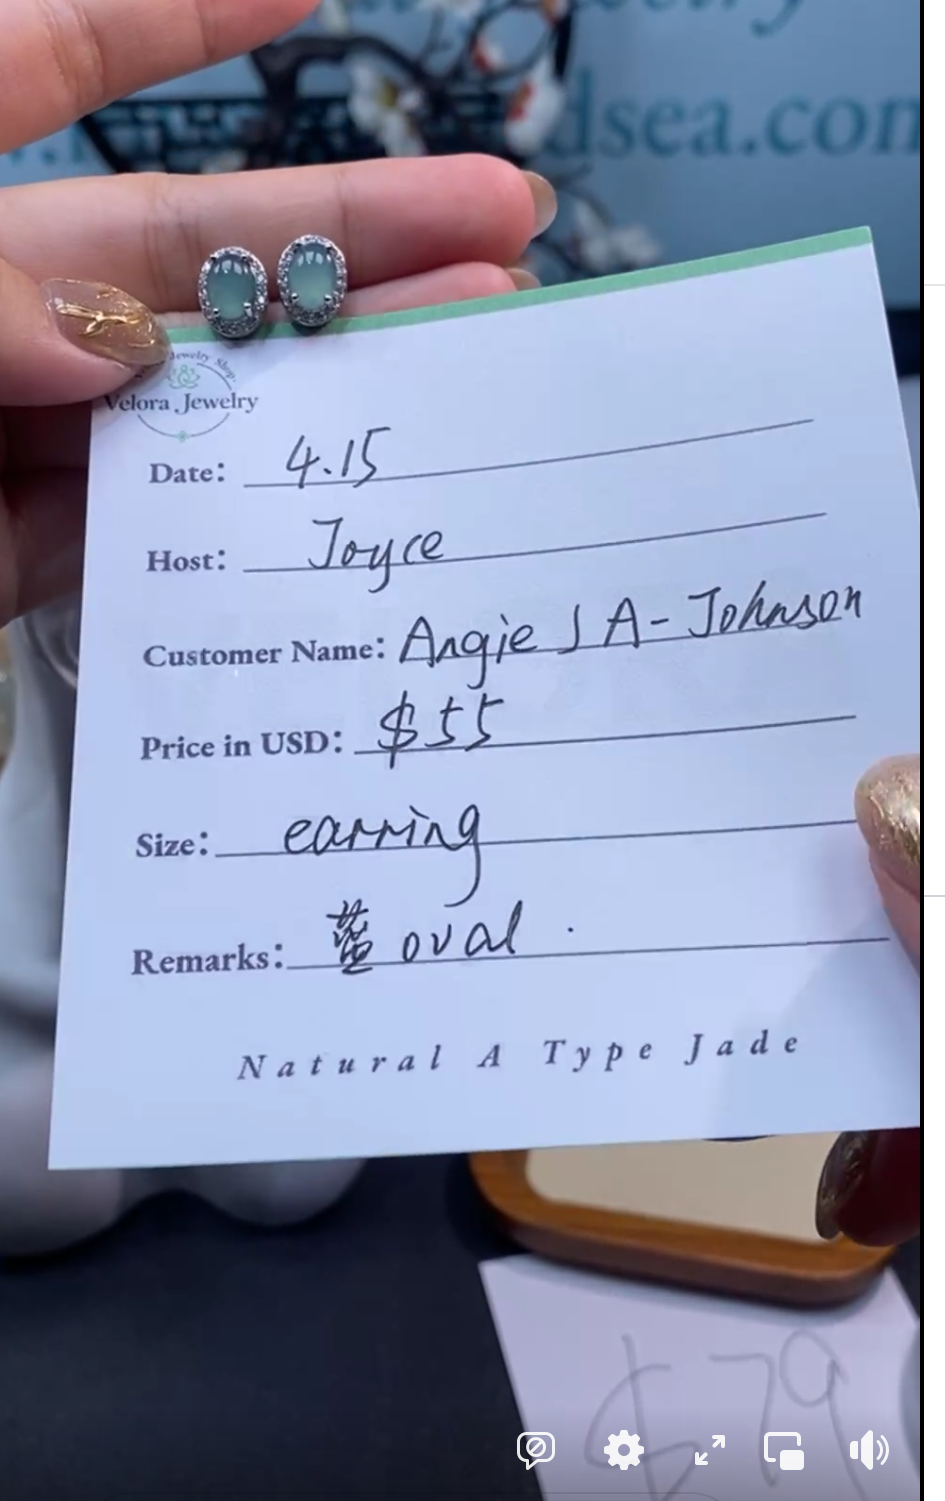 dsea.com
Jewelry Shop.
Velora Jewelry
Date: 4.15
Host: Joyce
Customer Name: Angie J A-Johnson
Price in USD: $55
Size: earring
Remarks: oval .
Natural A Type Jade
$79